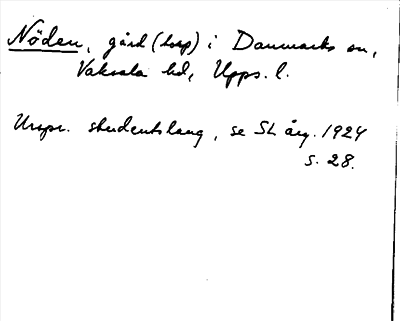 Nöden, gård (torp) i Danmarks sn,
Vaksala hd, Upps. l.
Urspr. studentslang, se SL årg. 1924
s. 28.